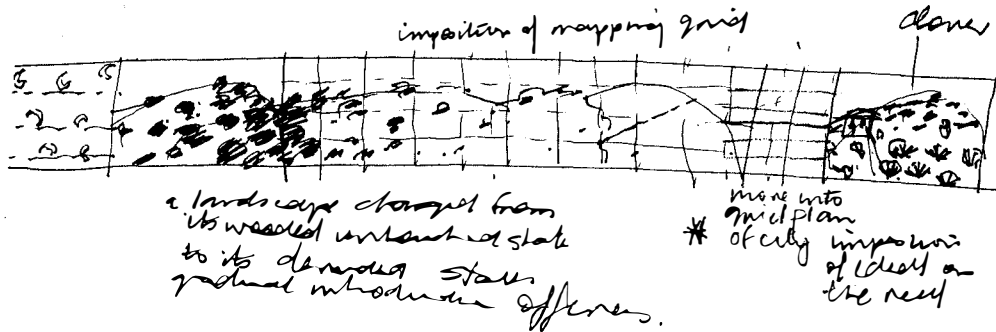 imposition of mapping grid
clover
a landscape changed from
its wooded untouched state
to its denuded state
gradual introduction of fences.
move into
* grid plan
of city imposition
of ideal on
the real